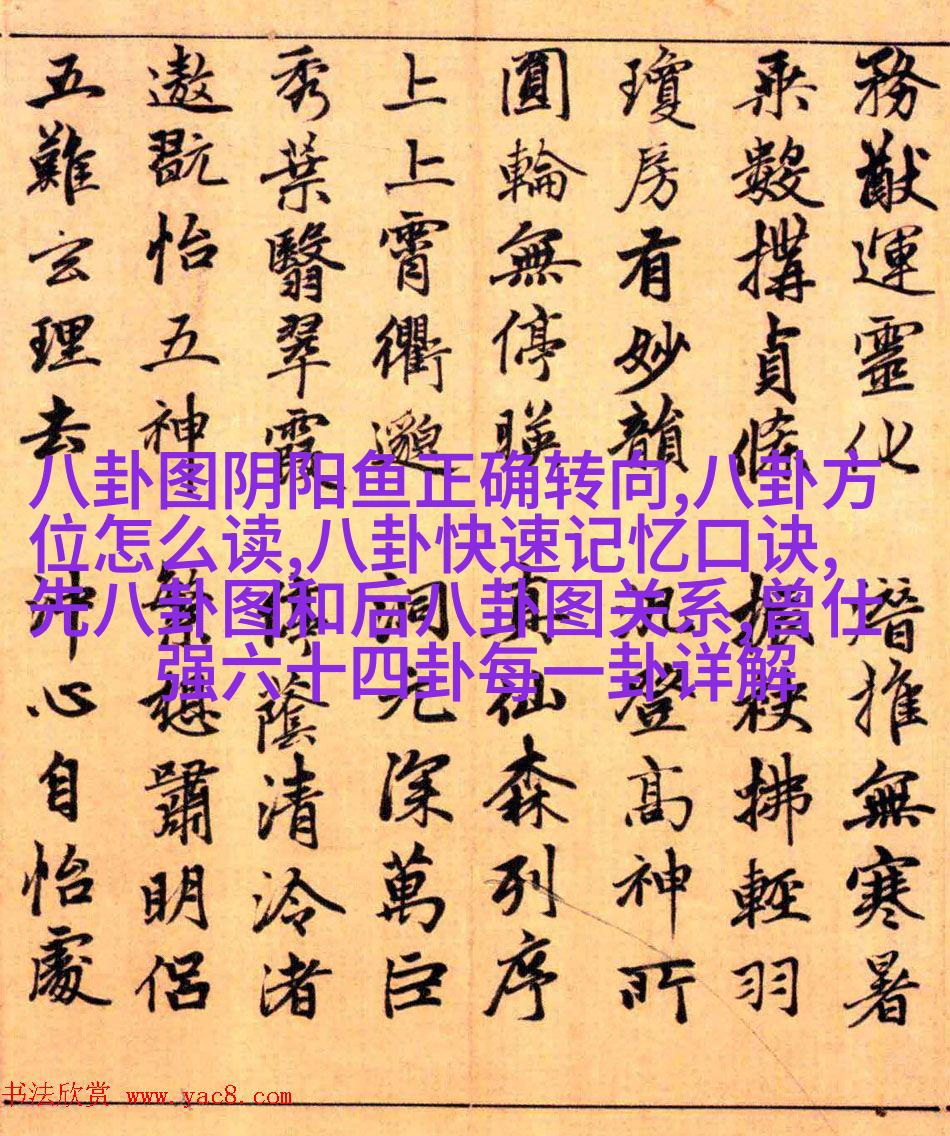 務猷運靈化潛推無寒暑
乘數構貞條振袂拂輕羽
瓊房有妙韻凡登高神所
圓輪無停暎真仙森列序
上上霄衢邈洞元深萬巨
秀葉翳翠霞停蔭清泠渚
遨翫怡五神繁想嘯明侶
五難玄理去沖心自怡處
八卦图阴阳鱼正确转向,八卦方
位怎么读,八卦快速记忆口诀,
先八卦图和后八卦图关系,曾仕
强六十四卦每一卦详解
书法欣赏 www.yac8.com